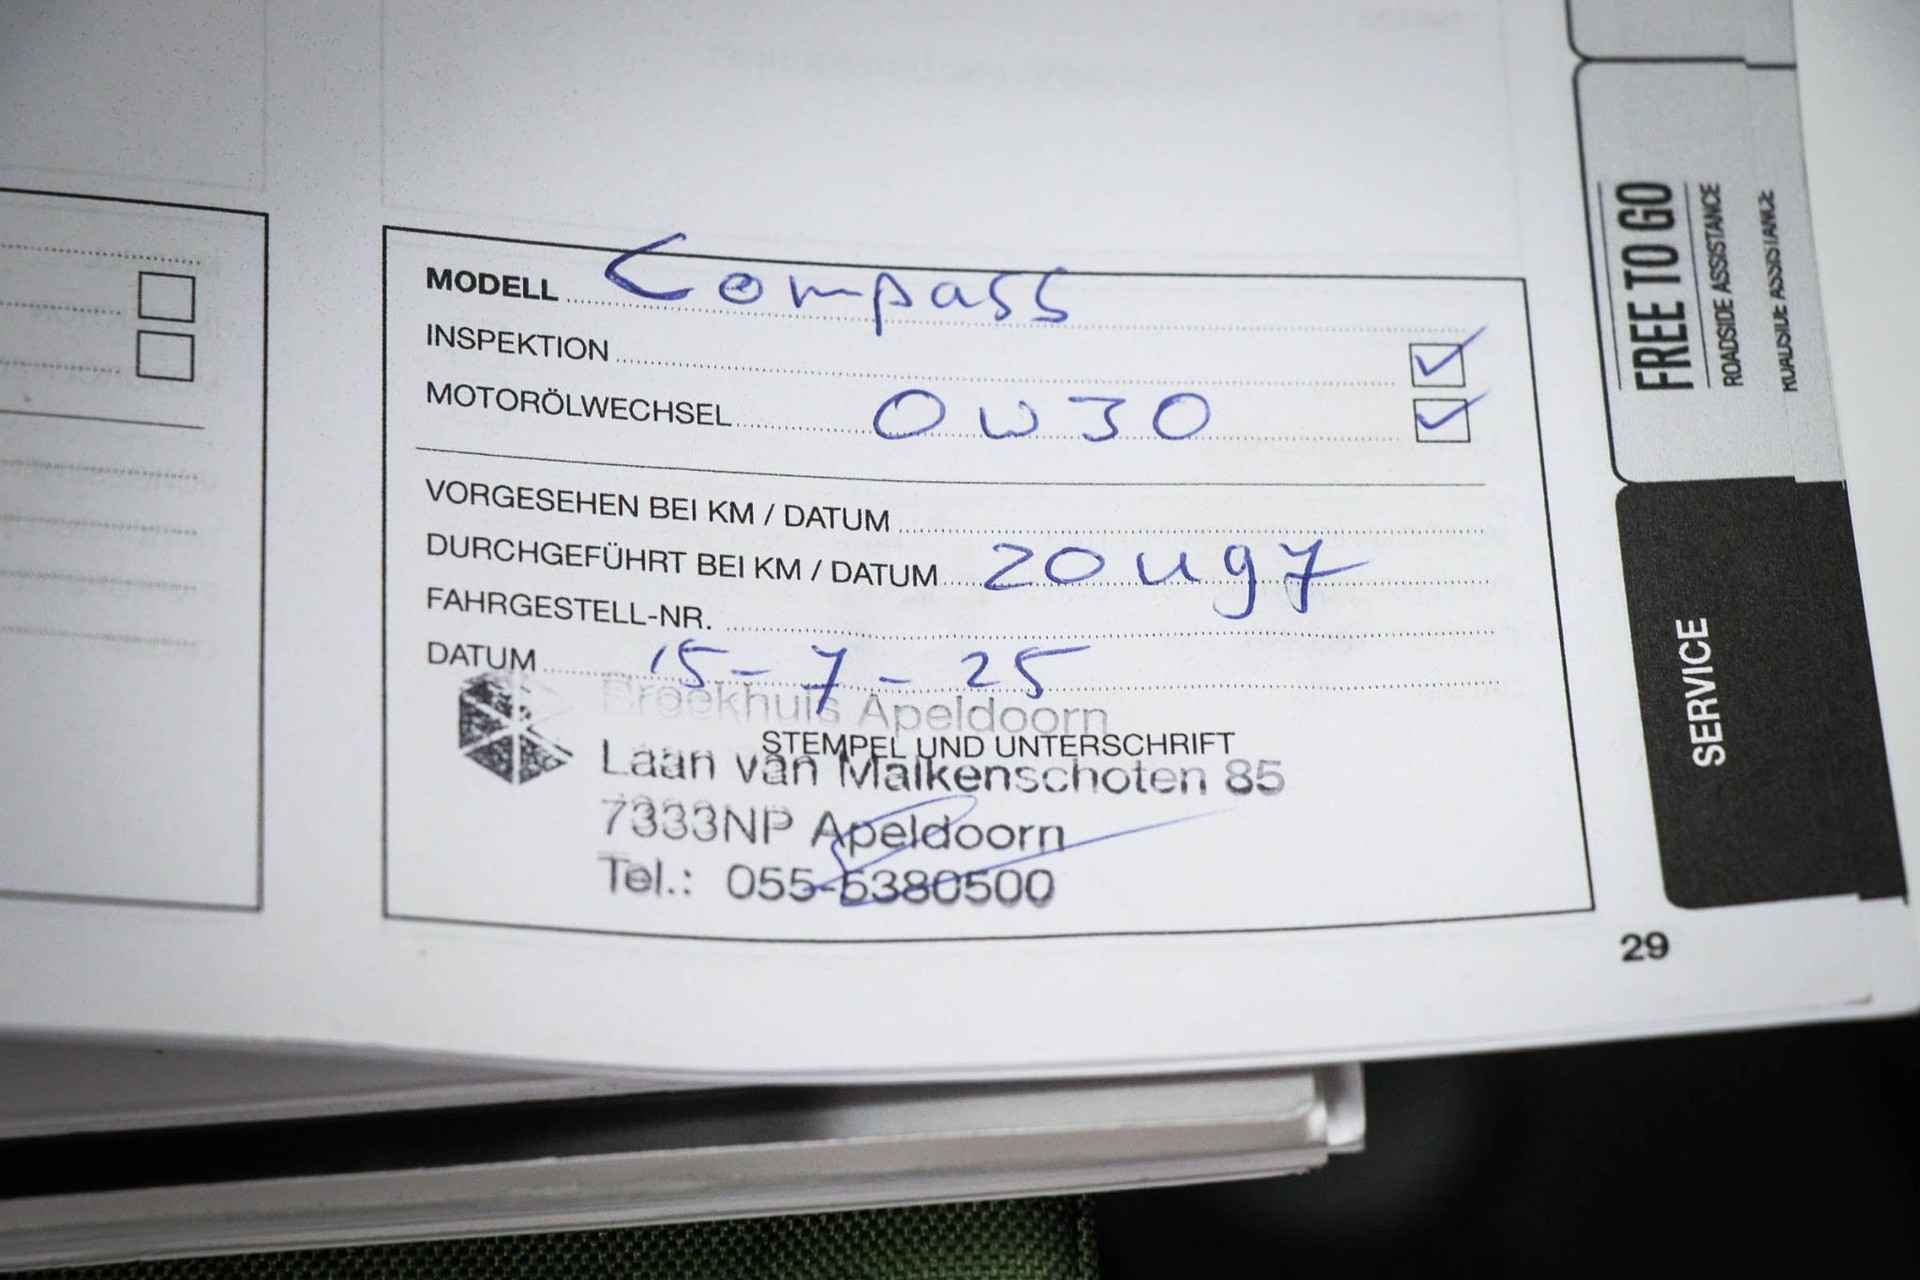 MODELL Compass
INSPEKTION
MOTORÖLWECHSEL 0W30
VORGESEHEN BEI KM / DATUM
DURCHGEFÜHRT BEI KM / DATUM 20497
FAHRGESTELL-NR.
DATUM 15-7-25
Broekhuis Apeldoorn
STEMPEL UND UNTERSCHRIFT
Laan van Malkenschoten 85
7333NP Apeldoorn
Tel.: 055-5380500
29
FREE TO GO
ROADSIDE ASSISTANCE
ROADSIDE ASSISTANCE
SERVICE